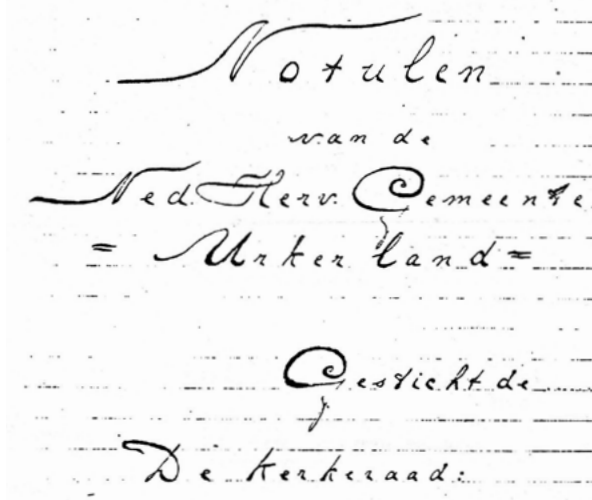 Notulen
van de
Ned. Herv. Gemeente
= Urkerland =
Gesticht de
De kerkeraad: